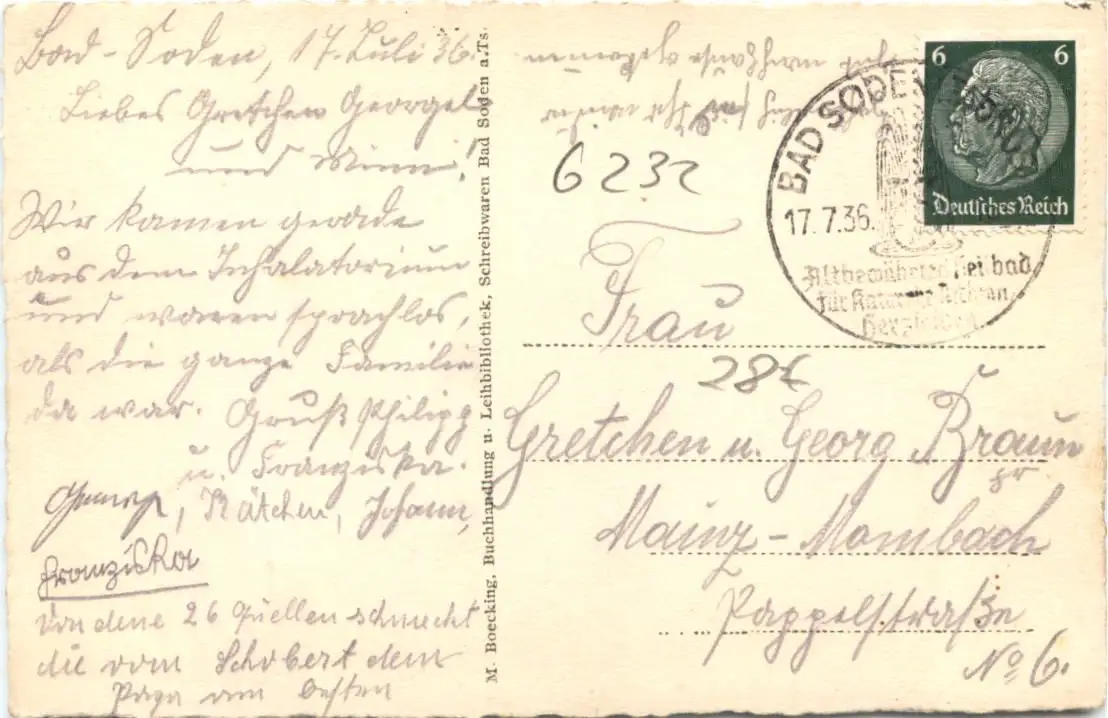 Bad-Soden, 17. Juli 36.
Liebes Gretchen Georgel
und Minni!
Wir kamen gerade
aus dem Inhalatorium
und waren sprachlos,
als die ganze Familie
da war. Gruß Philipp
u. Franziska.
Kätchen, Johann,
Franziska
von dene 26 Quellen schmeckt
die vom Schobert dem
Papa am besten
M. Boecking, Buchhandlung u. Leihbibliothek, Schreibwaren Bad Soden a.Ts.
6 6
Deutsches Reich
BAD SODEN
17.7.36.
Altbewährtes Heilbad
für Katarrhe
6232
Frau
284
Gretchen u. Georg Braun
Mainz-Mombach
Pappelstraße
No 6.